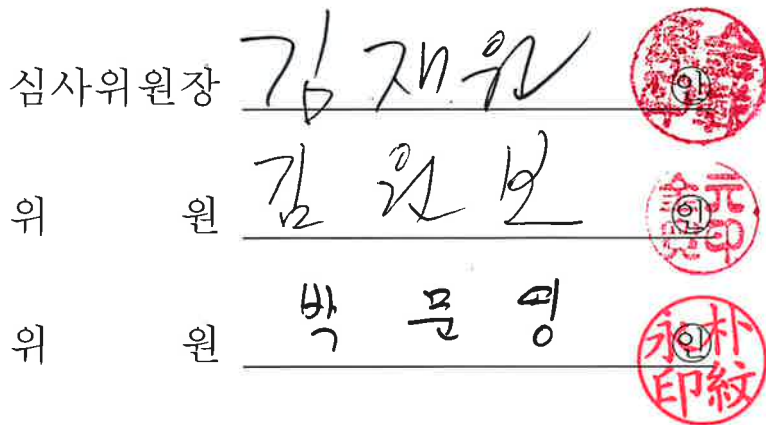 심사위원장 김재원 인
위 원 김원보 인
위 원 박문영 인
朴紋永印